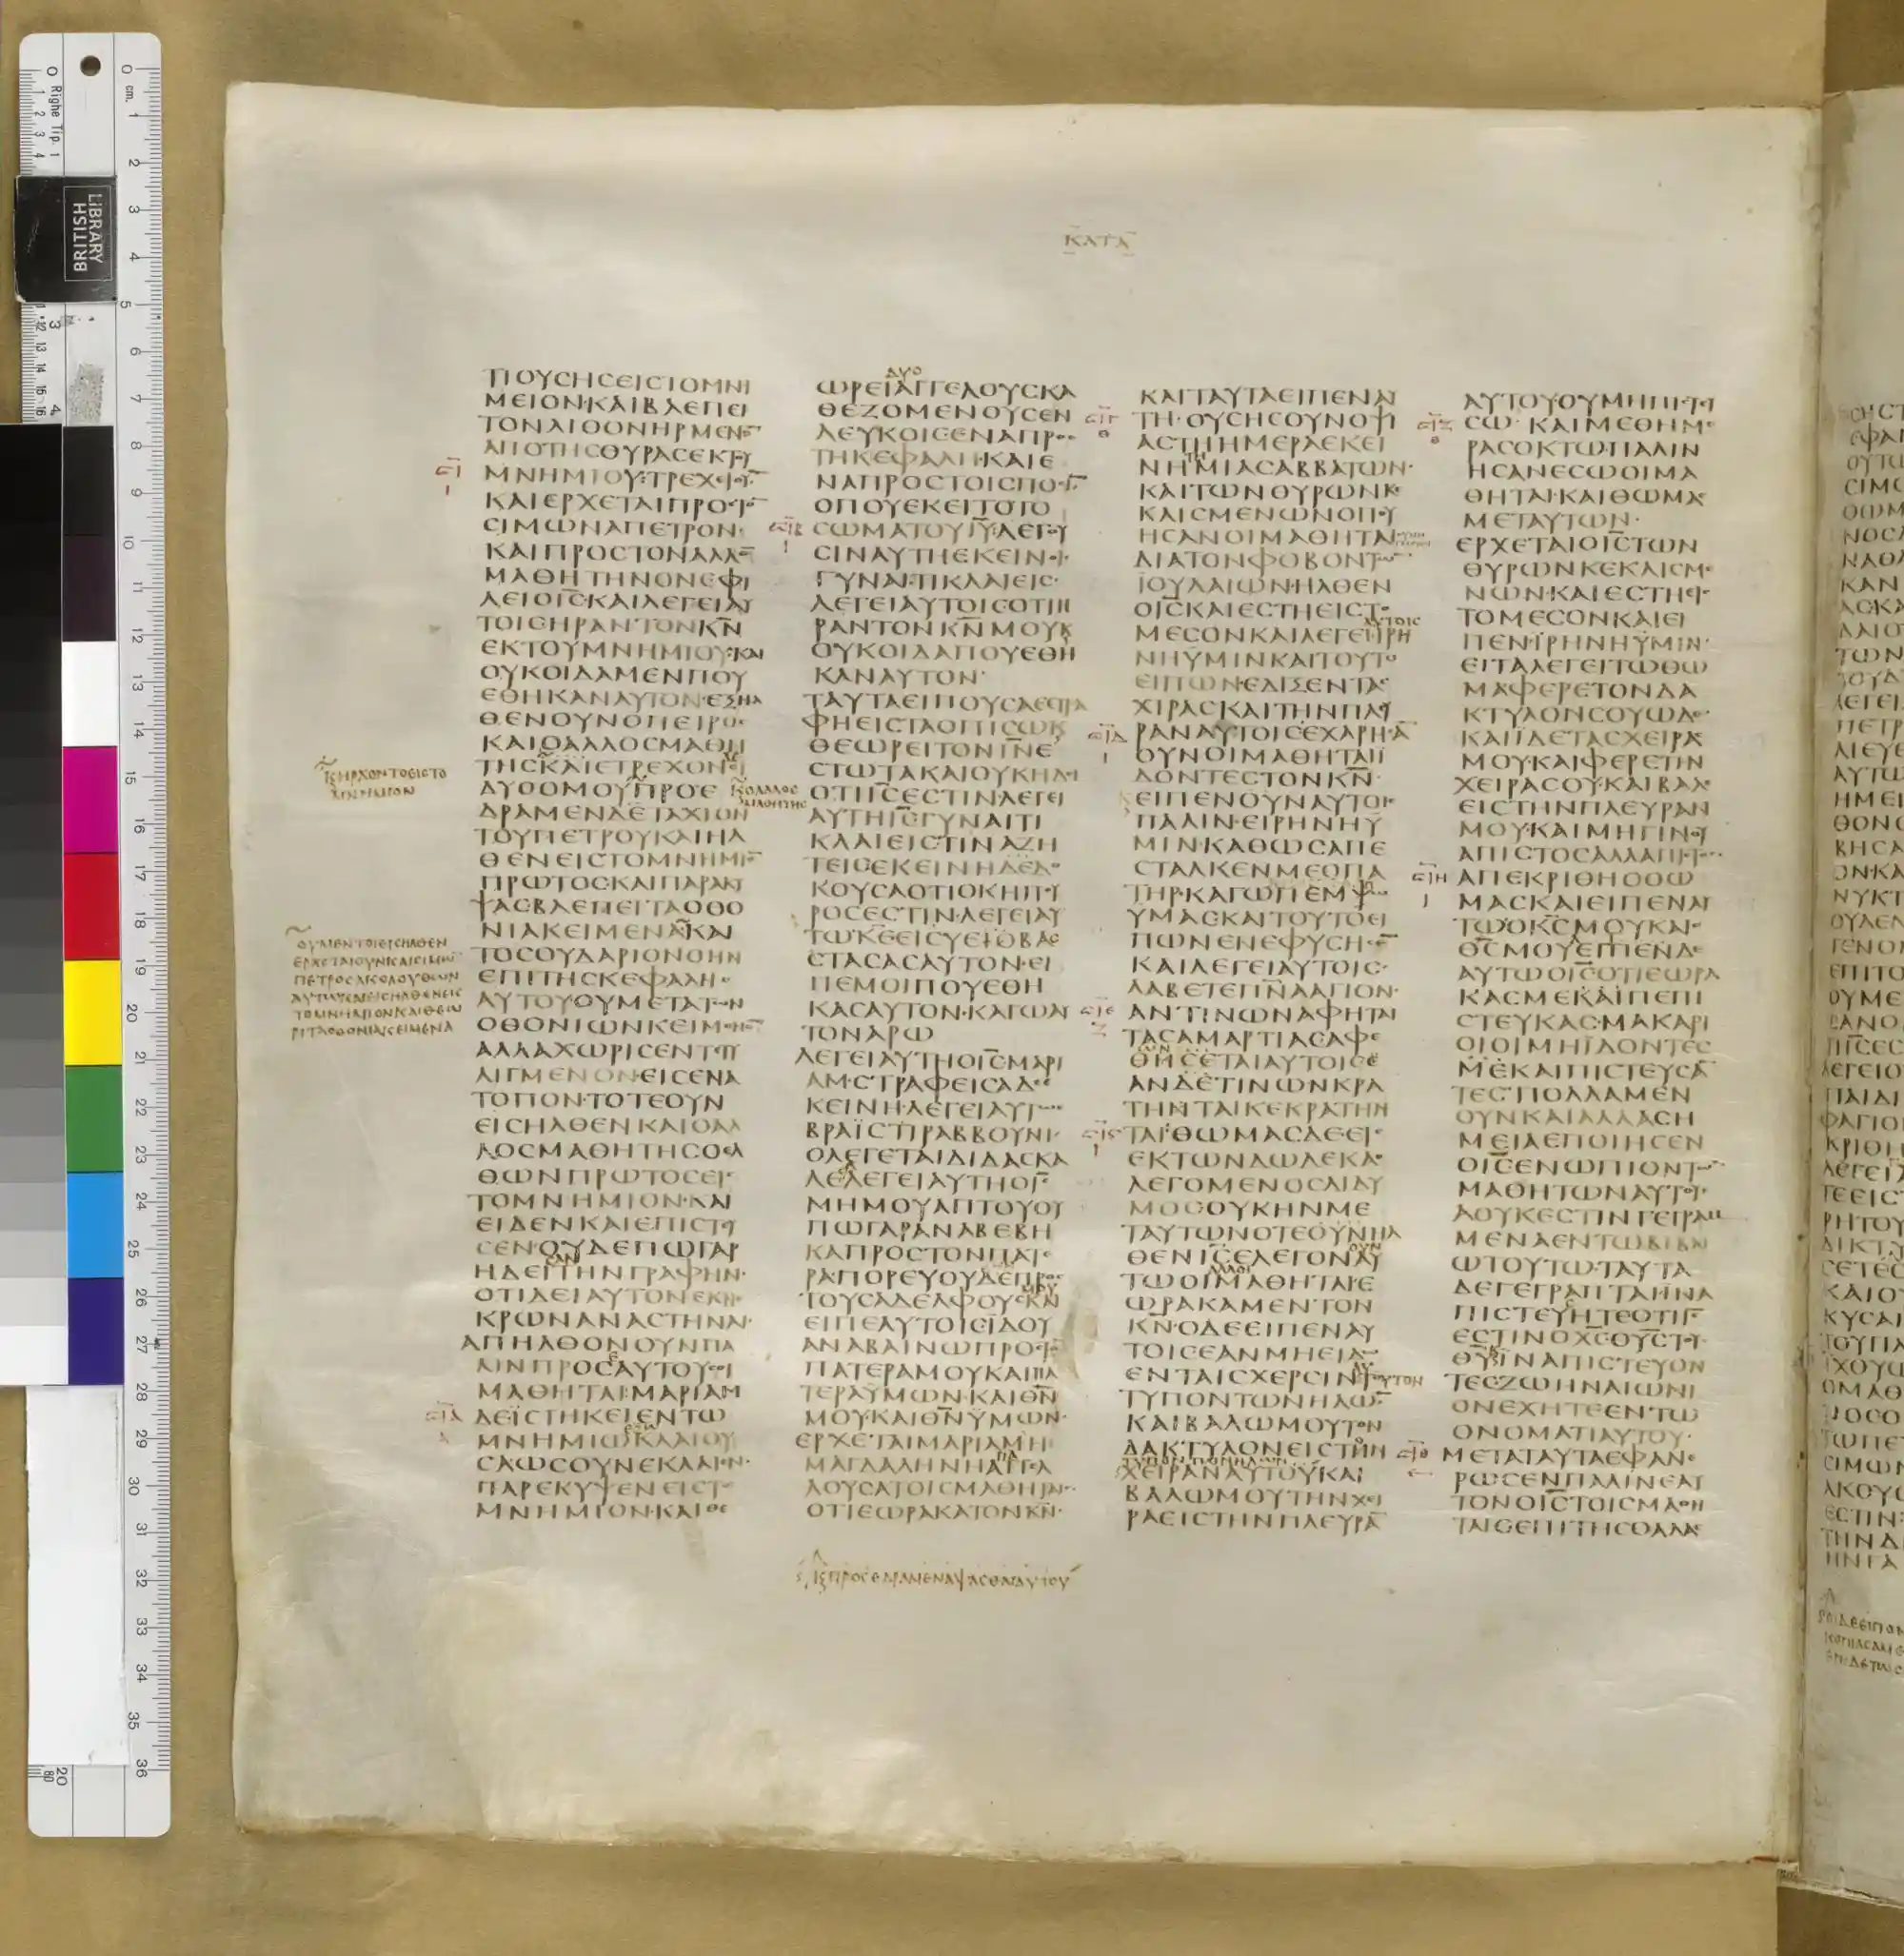 ΚΑΤΑ
ΠΟΥϹΗϹΕΙϹΤΟΜΝΗ
ΜΕΙΟΝ·ΚΑΙΒΛΕΠΕΙ
ΤΟΝΛΙΘΟΝΗΡΜΕΝΟ̅
ΑΠΟΤΗϹΘΥΡΑϹΕΚΤΟΥ
ΜΝΗΜΙΟΥ·ΤΡΕΧΕΙΟΥ̅
ΚΑΙΕΡΧΕΤΑΙΠΡΟϹΤΟ̅
ϹΙΜΩΝΑΠΕΤΡΟΝ·
ΚΑΙΠΡΟϹΤΟΝΑΛΛΟ̅
ΜΑΘΗΤΗΝΟΝΕΦΙ
ΛΕΙΟΙ̅Ϲ̅·ΚΑΙΛΕΓΕΙΑΥ
ΤΟΙϹΗΡΑΝΤΟΝΚ̅Ν̅
ΕΚΤΟΥΜΝΗΜΙΟΥ·ΚΑΙ
ΟΥΚΟΙΔΑΜΕΝΠΟΥ
ΕΘΗΚΑΝΑΥΤΟΝ·ΕΞΗΛ
ΘΕΝΟΥΝΟΠΕΤΡΟϹ
ΚΑΙΟΑΛΛΟϹΜΑΘΗ
ΤΗϹΚΑΙΕΤΡΕΧΟΝΟΙ
ΔΥΟΟΜΟΥΠΡΟΕ
ΔΡΑΜΕΝΔΕΤΑΧΙΟΝ
ΤΟΥΠΕΤΡΟΥΚΑΙΗΛ
ΘΕΝΕΙϹΤΟΜΝΗΜΙΟ̅
ΠΡΩΤΟϹΚΑΙΠΑΡΑΚΥ
ΨΑϹΒΛΕΠΕΙΤΑΟΘΟ
ΝΙΑΚΕΙΜΕΝΑΚΑΙ
ΤΟϹΟΥΔΑΡΙΟΝΟΗΝ
ΕΠΙΤΗϹΚΕΦΑΛΗϹ
ΑΥΤΟΥΟΥΜΕΤΑΤΩΝ
ΟΘΟΝΙΩΝΚΕΙΜΕΝΟ̅
ΑΛΛΑΧΩΡΙϹΕΝΤΕΤΥ
ΛΙΓΜΕΝΟΝ·ΕΙϹΕΝΑ
ΤΟΠΟΝ·ΤΟΤΕΟΥΝ
ΕΙϹΗΛΘΕΝΚΑΙΟΑΛ
ΛΟϹΜΑΘΗΤΗϹΟΕΛ
ΘΩΝΠΡΩΤΟϹΕΙϹ
ΤΟΜΝΗΜΙΟΝ·ΚΑΙ
ΕΙΔΕΝΚΑΙΕΠΙϹΤΕΥ
ϹΕΝ·ΟΥΔΕΠΩΓΑΡ
ΗΔΕΙΤΗΝΓΡΑΦΗΝ·
ΟΤΙΔΕΙΑΥΤΟΝΕΚΝΕ
ΚΡΩΝΑΝΑϹΤΗΝΑΙ·
ΑΠΗΛΘΟΝΟΥΝΠΑ
ΛΙΝΠΡΟϹΑΥΤΟΥϹΟΙ
ΜΑΘΗΤΑΙ·ΜΑΡΙΑΜ
ΔΕΪϹΤΗΚΕΙΕΝΤΩ
ΜΝΗΜΙΩΚΛΑΙΟΥ
ϹΑΩϹΟΥΝΕΚΛΑΙΕΝ·
ΠΑΡΕΚΥΨΕΝΕΙϹΤΟ
ΜΝΗΜΙΟΝ·ΚΑΙΘΕ
ΚΑΙΗΡΧΟΝΤΟΕΙϹΤΟ
ΜΝΗΜΙΟΝ
ΟΑΛΛΟϹ
ΜΑΘΗΤΗϹ
ΟΥΜΕΝΤΟΙΕΙϹΗΛΘΕΝ
ΕΡΧΕΤΑΙΟΥΝΚΑΙϹΙΜΩ̅
ΠΕΤΡΟϹΑΚΟΛΟΥΘΩΝ
ΑΥΤΩΚΑΙΕΙϹΗΛΘΕΝΕΙϹ
ΤΟΜΝΗΜΙΟΝΚΑΙΘΕΩ
ΡΙΤΑΟΘΟΝΙΑΚΕΙΜΕΝΑ
ΔΥΟ
ΩΡΕΙΑΓΓΕΛΟΥϹΚΑ
ΘΕΖΟΜΕΝΟΥϹΕΝ
ΛΕΥΚΟΙϹΕΝΑΠΡΟϹ
ΤΗΚΕΦΑΛΗ·ΚΑΙΕ
ΝΑΠΡΟϹΤΟΙϹΠΟϹΙ̅
ΟΠΟΥΕΚΕΙΤΟΤΟ
ϹΩΜΑΤΟΥΙ̅Υ̅·ΛΕΓΟΥ
ϹΙΝΑΥΤΗΕΚΕΙΝΟΙ·
ΓΥΝΑΙ·ΤΙΚΛΑΙΕΙϹ·
ΛΕΓΕΙΑΥΤΟΙϹΟΤΙΗ
ΡΑΝΤΟΝΚ̅Ν̅ΜΟΥΚ
ΟΥΚΟΙΔΑΠΟΥΕΘΗ
ΚΑΝΑΥΤΟΝ·
ΤΑΥΤΑΕΙΠΟΥϹΑΕϹΤΡΑ
ΦΗΕΙϹΤΑΟΠΙϹΩΚ
ΘΕΩΡΕΙΤΟΝΙ̅Ν̅Ε
ϹΤΩΤΑΚΑΙΟΥΚΗΔΕΙ
ΟΤΙΙ̅Ϲ̅ΕϹΤΙΝ·ΛΕΓΕΙ
ΑΥΤΗΙ̅Ϲ̅ΓΥΝΑΙΤΙ
ΚΛΑΙΕΙϹΤΙΝΑΖΗ
ΤΕΙϹΕΚΕΙΝΗΔΕΔΟ
ΚΟΥϹΑΟΤΙΟΚΗΠΟΥ
ΡΟϹΕϹΤΙΝ·ΛΕΓΕΙΑΥ
ΤΩΚ̅Ε̅ΕΙϹΥΕΙΟΒΑϹ
ϹΤΑϹΑϹΑΥΤΟΝ·ΕΙ
ΠΕΜΟΙΠΟΥΕΘΗ
ΚΑϹΑΥΤΟΝ·ΚΑΓΩΑΥ
ΤΟΝΑΡΩ
ΛΕΓΕΙΑΥΤΗΟΙ̅Ϲ̅ΜΑΡΙ
ΑΜ·ϹΤΡΑΦΕΙϹΑΔΕΕ
ΚΕΙΝΗ·ΛΕΓΕΙΑΥΤΩΕ
ΒΡΑΪϹΤΙΡΑΒΒΟΥΝΙ·
ΟΛΕΓΕΤΑΙΔΙΔΑϹΚΑ
ΛΕΛΕΓΕΙΑΥΤΗΟΙ̅Ϲ̅
ΜΗΜΟΥΑΠΤΟΥΟΥ
ΠΩΓΑΡΑΝΑΒΕΒΗ
ΚΑΠΡΟϹΤΟΝΠΑΤΕ
ΡΑΠΟΡΕΥΟΥΔΕΠΡΟϹ
ΤΟΥϹΑΔΕΛΦΟΥϹΚΑΙ
ΕΙΠΕΑΥΤΟΙϹΪΔΟΥ
ΑΝΑΒΑΙΝΩΠΡΟϹΤΟ̅
ΠΑΤΕΡΑΜΟΥΚΑΙΠΑ
ΤΕΡΑΫΜΩΝ·ΚΑΙΘ̅Ν̅
ΜΟΥ·ΚΑΙΘ̅Ν̅ΫΜΩΝ·
ΕΡΧΕΤΑΙΜΑΡΙΑΜΗ
ΜΑΓΔΑΛΗΝΗΑΓΓΕΛ
ΛΟΥϹΑΤΟΙϹΜΑΘΗΤΑΙϹ
ΟΤΙΕΩΡΑΚΑΤΟΝΚ̅Ν̅·
ΚΑΙΠΡΟϹΕΔΡΑΜΕΝΑΨΑϹΘΑΙΑΥΤΟΥ
ΚΑΙΤΑΥΤΑΕΙΠΕΝΑΥ
ΤΗ·ΟΥϹΗϹΟΥΝΟΨΙ
ΑϹΤΗΗΜΕΡΑΕΚΕΙ
ΝΗΜΙΑϹΑΒΒΑΤΩΝ·
ΚΑΙΤΩΝΘΥΡΩΝΚΕ
ΚΛΙϹΜΕΝΩΝΟΠΟΥ
ΗϹΑΝΟΙΜΑΘΗΤΑΙ
ΔΙΑΤΟΝΦΟΒΟΝΤΩ̅
ΪΟΥΔΑΙΩΝ·ΗΛΘΕΝ
ΟΙ̅Ϲ̅ΚΑΙΕϹΤΗΕΙϹΤΟ
ΜΕϹΟΝΚΑΙΛΕΓΕΙΙΡΗ
ΝΗΫΜΙΝΚΑΙΤΟΥΤΟ
ΕΙΠΩΝ·ΕΔΙΞΕΝΤΑϹ
ΧΙΡΑϹΚΑΙΤΗΝΠΛΕΥ
ΡΑΝΑΥΤΟΙϹ·ΕΧΑΡΗϹΑ̅
ΟΥΝΟΙΜΑΘΗΤΑΙΪ
ΔΟΝΤΕϹΤΟΝΚ̅Ν̅·
ΕΙΠΕΝΟΥΝΑΥΤΟΙϹ
ΠΑΛΙΝ·ΕΙΡΗΝΗΫ
ΜΙΝ·ΚΑΘΩϹΑΠΕ
ϹΤΑΛΚΕΝΜΕΟΠΑ
ΤΗΡ·ΚΑΓΩΠΕΜΨΩ
ΫΜΑϹΚΑΙΤΟΥΤΟΕΙ
ΠΩΝΕΝΕΦΥϹΗϹΕ̅
ΚΑΙΛΕΓΕΙΑΥΤΟΙϹ·
ΛΑΒΕΤΕΠ̅Ν̅Α̅ΑΓΙΟΝ·
ΑΝΤΙΝΩΝΑΦΗΤΑΙ
ΤΑϹΑΜΑΡΤΙΑϹΑΦΕ
ΘΗϹΕΤΑΙΑΥΤΟΙϹΕ
ΑΝΔΕΤΙΝΩΝΚΡΑ
ΤΗΝΤΑΙΚΕΚΡΑΤΗΝ
ΤΑΙ·ΘΩΜΑϹΔΕΕΙϹ
ΕΚΤΩΝΔΩΔΕΚΑΟ
ΛΕΓΟΜΕΝΟϹΔΙΔΥ
ΜΟϹΟΥΚΗΝΜΕ
ΤΑΥΤΩΝΟΤΕΟΥΝΗΛ
ΘΕΝΙ̅Ϲ̅ΕΛΕΓΟΝΑΥ
ΤΩΟΙΜΑΘΗΤΑΙ·Ε
ΩΡΑΚΑΜΕΝΤΟΝ
Κ̅Ν̅·ΟΔΕΕΙΠΕΝΑΥ
ΤΟΙϹΕΑΝΜΗΕΙΔΩ
ΕΝΤΑΙϹΧΕΡϹΙΝΤΟΝ
ΤΥΠΟΝΤΩΝΗΛΩ̅
ΚΑΙΒΑΛΩΜΟΥΤΟΝ
ΔΑΚΤΥΛΟΝΕΙϹΤΗΝ
ΧΕΙΡΑΝΑΥΤΟΥΚΑΙ
ΒΑΛΩΜΟΥΤΗΝΧΕΙ
ΡΑΕΙϹΤΗΝΠΛΕΥΡΑ̅
ΑΥΤΟΥΟΥΜΗΠΙϹΤΕΥ
ϹΩ·ΚΑΙΜΕΘΗΜΕ
ΡΑϹΟΚΤΩΠΑΛΙΝ
ΗϹΑΝΕϹΩΟΙΜΑ
ΘΗΤΑΙ·ΚΑΙΘΩΜΑϹ
ΜΕΤΑΥΤΩΝ·
ΕΡΧΕΤΑΙΟΙ̅Ϲ̅ΤΩΝ
ΘΥΡΩΝΚΕΚΛΙϹΜΕ
ΝΩΝ·ΚΑΙΕϹΤΗΕΙϹ
ΤΟΜΕϹΟΝΚΑΙΕΙ
ΠΕΝ·ΪΡΗΝΗΫΜΙΝ·
ΕΙΤΑΛΕΓΕΙΤΩΘΩ
ΜΑΦΕΡΕΤΟΝΔΑ
ΚΤΥΛΟΝϹΟΥΩΔΕ·
ΚΑΙΪΔΕΤΑϹΧΕΙΡΑϹ
ΜΟΥ·ΚΑΙΦΕΡΕΤΗΝ
ΧΕΙΡΑϹΟΥ·ΚΑΙΒΑΛΕ
ΕΙϹΤΗΝΠΛΕΥΡΑΝ
ΜΟΥ·ΚΑΙΜΗΓΙΝΟΥ
ΑΠΙϹΤΟϹΑΛΛΑΠΙϹΤΟϹ
ΑΠΕΚΡΙΘΗΟΘΩ
ΜΑϹΚΑΙΕΙΠΕΝΑΥ
ΤΩΟΚ̅Ϲ̅ΜΟΥΚΑΙΟ
Θ̅Ϲ̅ΜΟΥΕΙΠΕΝΔΕ
ΑΥΤΩΟΙ̅Ϲ̅ΟΤΙΕΩΡΑ
ΚΑϹΜΕΚΑΙΠΕΠΙ
ϹΤΕΥΚΑϹ·ΜΑΚΑΡΙ
ΟΙΟΙΜΗΪΔΟΝΤΕϹ
ΜΕΚΑΙΠΙϹΤΕΥϹΑ̅
ΤΕϹ·ΠΟΛΛΑΜΕΝ
ΟΥΝΚΑΙΑΛΛΑϹΗ
ΜΕΙΑΕΠΟΙΗϹΕΝ
ΟΙ̅Ϲ̅ΕΝΩΠΙΟΝΤΩ̅
ΜΑΘΗΤΩΝΑΥΤΟΥ·
ΑΟΥΚΕϹΤΙΝΓΕΓΡΑΜ
ΜΕΝΑΕΝΤΩΒΙΒΛΙ
ΩΤΟΥΤΩ·ΤΑΥΤΑ
ΔΕΓΕΓΡΑΠΤΑΙΙΝΑ
ΠΙϹΤΕΥΗΤΕΟΤΙΙ̅Ϲ̅
ΕϹΤΙΝΟΧ̅Ϲ̅ΟΥ̅Ϲ̅ΤΟΥ
Θ̅Υ̅ΙΝΑΠΙϹΤΕΥΟΝ
ΤΕϹΖΩΗΝΑΙΩΝΙ
ΟΝΕΧΗΤΕΕΝΤΩ
ΟΝΟΜΑΤΙΑΥΤΟΥ·
ΜΕΤΑΤΑΥΤΑΕΦΑΝΕ
ΡΩϹΕΝΠΑΛΙΝΕΑΥ
ΤΟΝΟΙ̅Ϲ̅ΤΟΙϹΜΑΘΗ
ΤΑΙϹΕΠΙΤΗϹΘΑΛΑϹ
LIBRARY
BRITISH